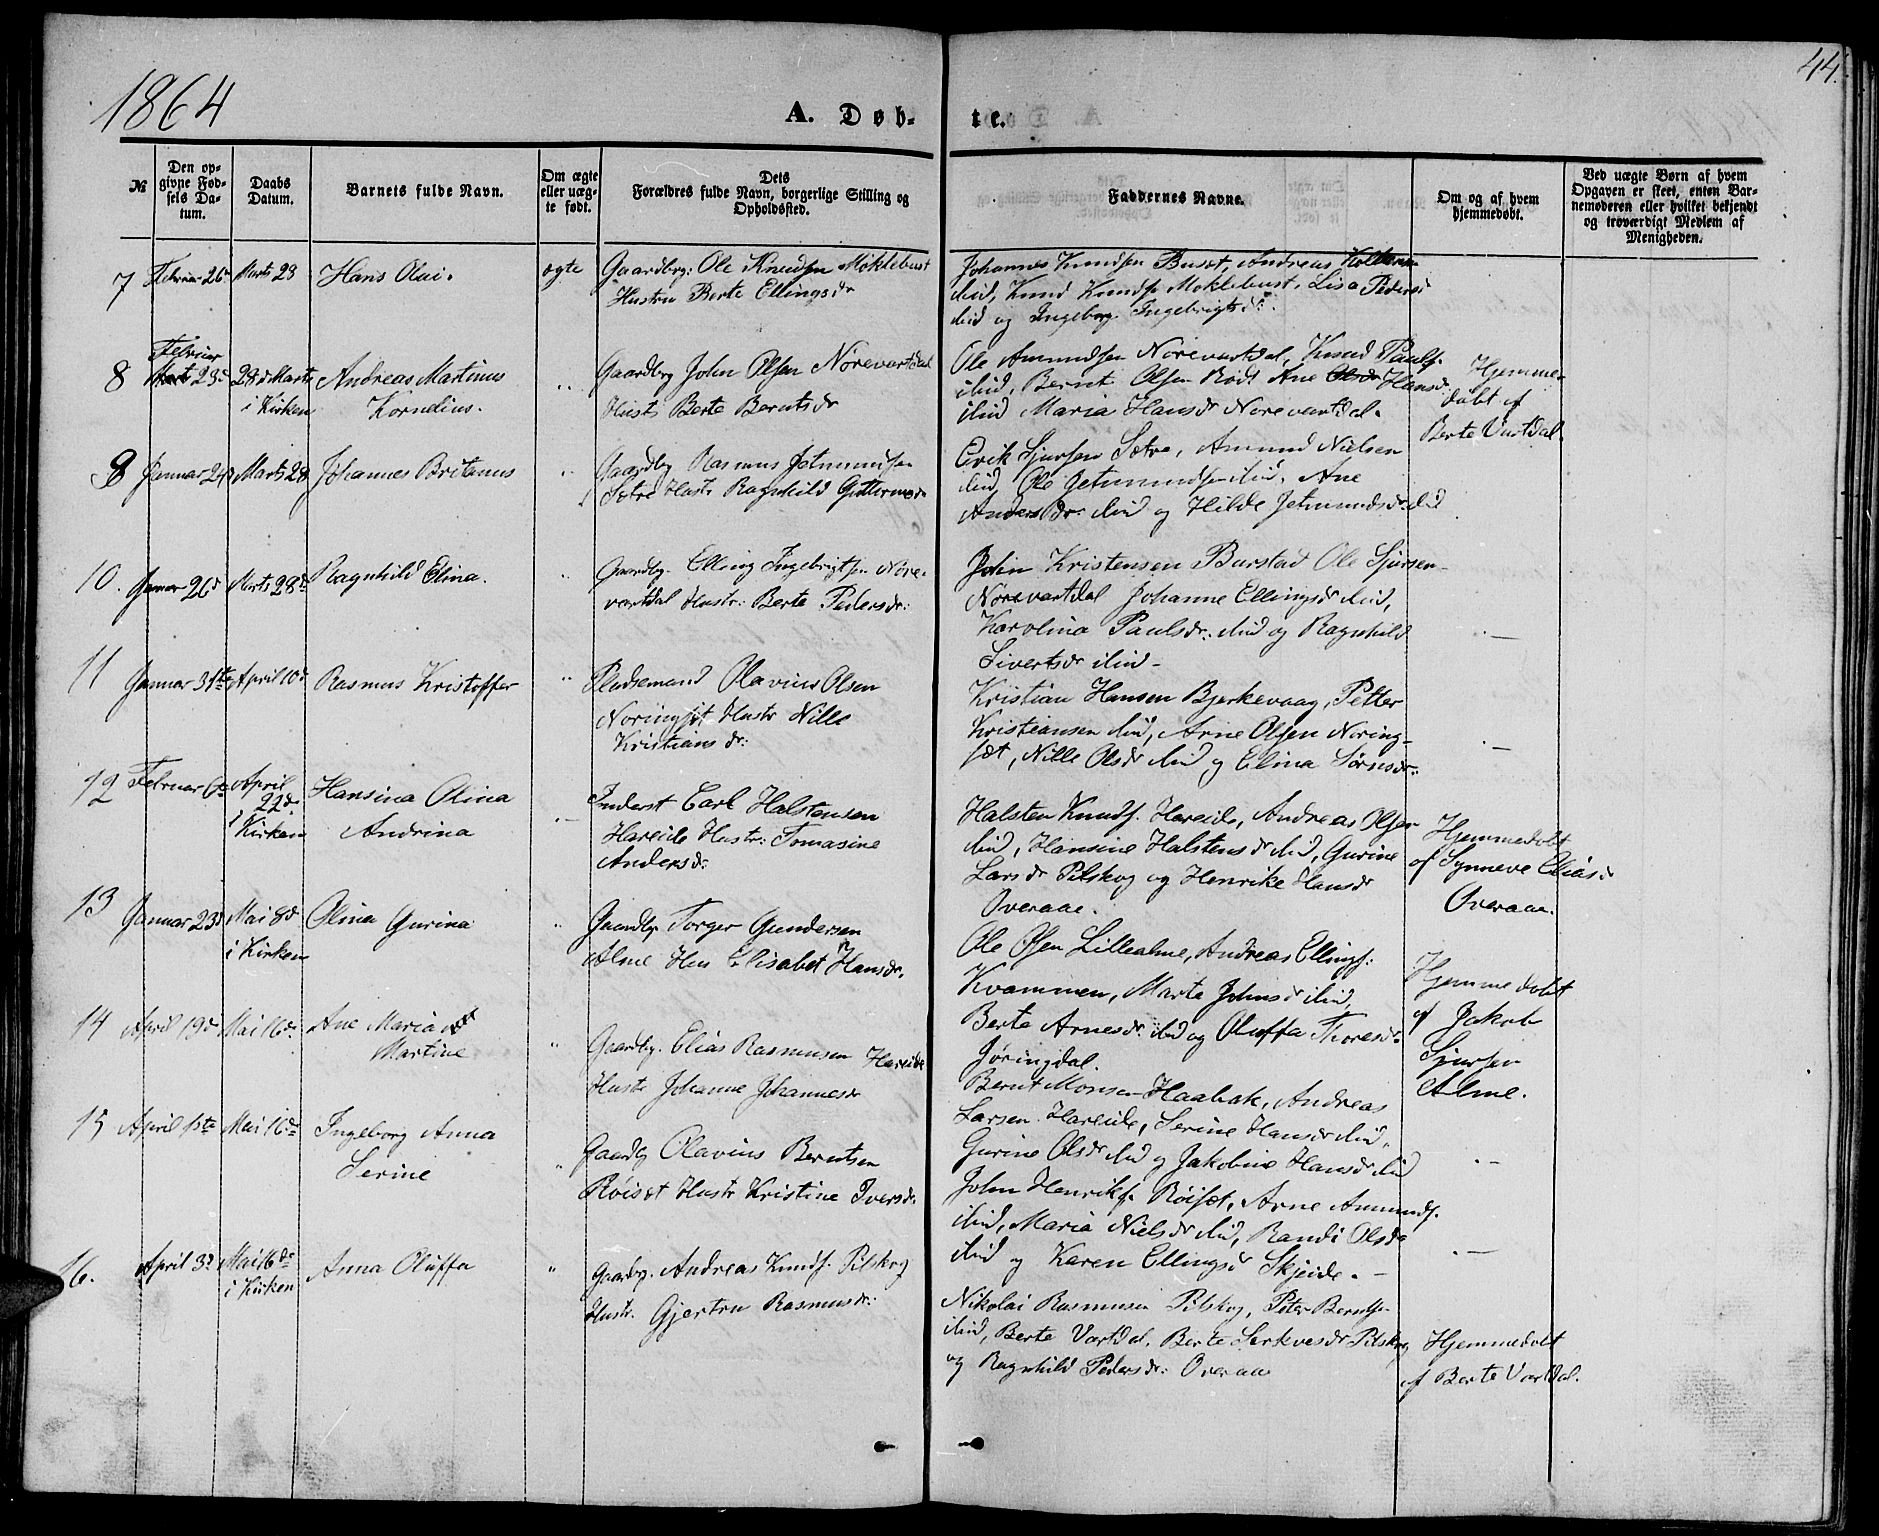 1864
44.
A. Døb-
te.
№
Den op-
givne Fød-
sels Da-
tum.
Daabs
Datum.
Barnets fulde Navn.
Om ægte
eller uæg-
te født.
Dets
Forældres fulde Navn, borgerlige Stilling og
Opholdssted.
Faddernes Navne.
Om og af hvem
hjemmedøbt.
Ved uægte Børn af hvem
Opgaven er skeet, enten Bar-
nemoderen eller hvilket bekjendt
og troværdigt Medlem af
Menigheden.
7
Februar 26
Marts 28
Hans Olai.
ægte
Gaardbr: Ole Knudsen Moklebust
Hustru Berte Ellingsdr
Johannes Knudsen Buset, Andreas
ibid, Knud Knuds. Moklebust, Lisa Pedersd
ibid og Ingeborg Ingebrigtsdr.
8
Februar
Marts 23d
28d Marts
i Kirken
Andreas Martinus
Kornelius.
"
Gaardbrg John Olsen Norevartdal
Hust Berte Berntsdr
Ole Amundsen Norevartdal, Knud Pauls.
ibid, Bernt Olsen Rødt Ane Olsdr Hansdr
ibid Maria Hansdr Norevartdal.
Hjemme-
døbt af
Berte Vartdal.
9
Januar 24d
Marts 28
Johannes Britanus
"
Gaardbg Rasmus Jetmundsen
Sætre Hustr Ragnhild Guttormsdr
Erik Sjursen Sætre, Amund Nielsen
ibid, Ole Jetmundsen ibid, Ane
Andersdr: ibid og Hilde Jetmundsdr: ibid
10.
Januar 26d
Marts 28d
Ragnhild Elina.
"
Gaardbg. Elling Ingebrigtsen Nore-
vartdal Hustr: Berte Pedersdr:
John Kristensen Barstad Ole Sjursen
Norevartdal Johanne Ellingsdr ibid,
Karolina Paulsdr: ibid og Ragnhild
Sivertsdr ibid-
. —
11
Januar 31te
April 10d
Rasmus Kristoffer
"
Pladsemand Olavius Olsen
Noringset Hustr Nille
Kristiansdr:
Kristian Hansen Bjerkevaag, Petter
Kristiansen ibid, Arne Olsen Noring-
sæt, Nille Olsdr ibid og Elina Sørnsdr:
. —
12
Februar 6te
April
22d
i Kirken
Hansina Olina
Andrina
. —
Inderst Carl Halstensen
Hareide Hustr: Tomasine
Andersdr:
Halsten Knuds. Hareide, Andreas Olsen
ibid, Hansine Halstensdr ibid, Gurine
Larsdr Pilskog og Henrike Hansdr
Overaae.
Hjemmedøbt
af Synneve Eliasdr
Overaae.
13
Januar 23d
Mai 8d
i Kirken
Olina Gurina
"
Gaardbg Torger Gundersen
Alme Hus Elisabet Hansdr.
Ole Olsen Lillealme, Andreas Ellings.
Kvammen, Marte Johnsdr ibid,
Berte Arnesdr: ibid og Oluffa Thoresdr.
Jøringdal.
Hjemmedøbt
af Jakob
Sjursen
Alme.
14
April 19d
Mai 16d:
Ane Maria
Martine
"
Gaardbg. Elias Rasmusen Hareide
Hustr Johanne Johannesdr
Bernt Monsen Haabak, Andreas
Larsen Hareide, Serine Hansdr ibid,
Gurine Olsdr ibid og Jakobine Hansdr ibid
. —
15
April 1ste
Mai 16de
Ingeborg Anna
Serine
"
Gaardbg Olavius Berntsen
Røiset Hustr Kristine Iversdr
John Henriks. Røisæt, Arne Amunds.
ibid, Maria Nielsdr ibid, Randi Olsdr
ibid og Karen Ellingsdr Skjeide. —
. —
16.
April 3d
Mai 16de
i Kirken
Anna Oluffa
"
Gaardbg. Andreas Knuds. Pilskog
Hustr. Gjertru Rasmusdr:
Nikolai Rasmusen Pilskog, Peter Berntsen
ibid, Berte Vartdal, Berte Serkvesdr Pilskog
og Ragnhild Pedersdr: Overaae
Hjemmedøbt
af Berte Vartdal.